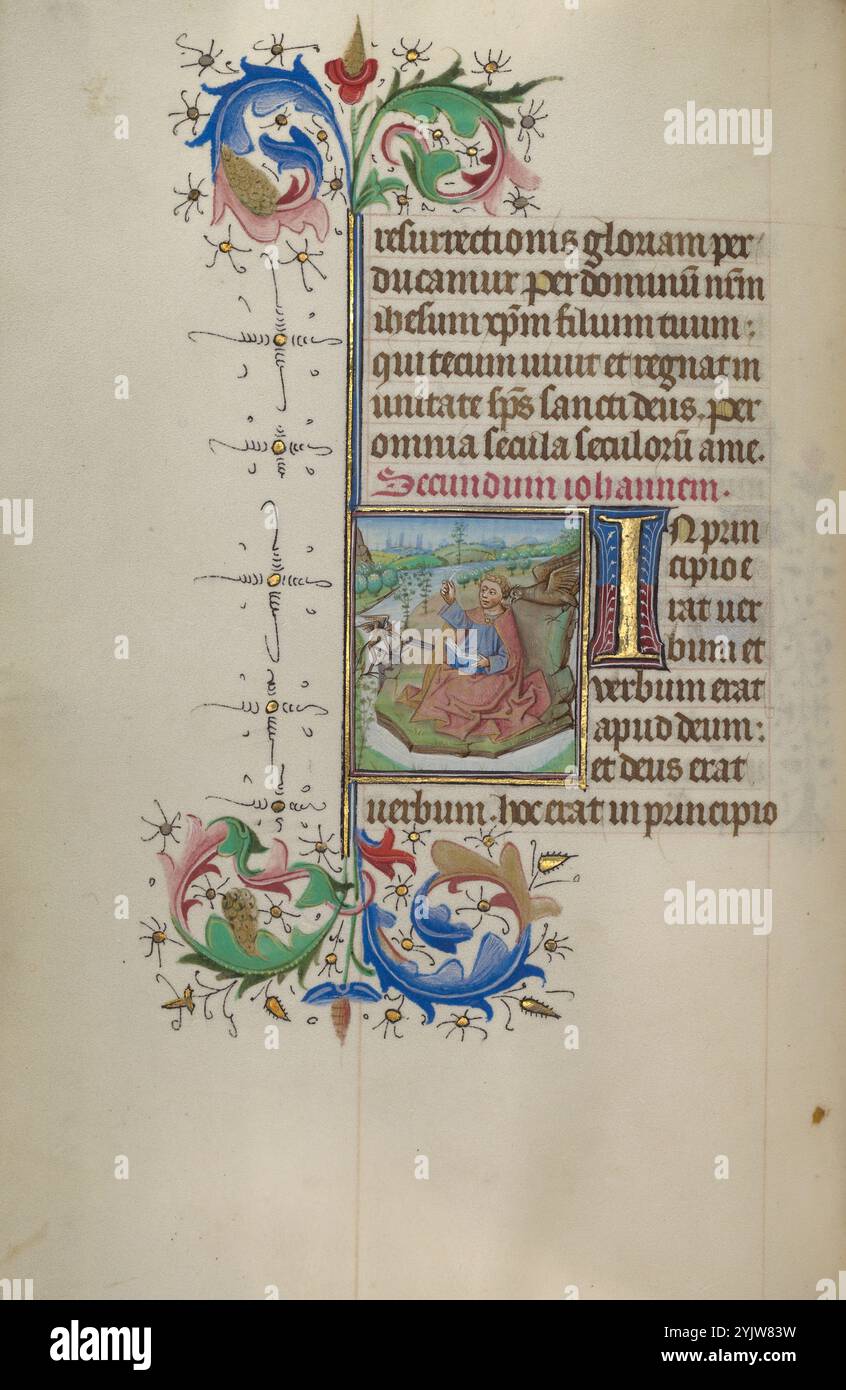 resurrectionis gloriam per
ducamur per dominū nr̄m
ihesum xp̄m filium tuum:
qui tecum uiuit et regnat in
unitate sp̄s sancti deus. per
omnia secula seculorū ame.
Secundum iohannem.
IN prin
cipio e
rat uer
bum et
verbum erat
apud deum:
et deus erat
verbum. hoc erat in principio
alamy
alamy
alamy
a
a
a
a
a
a
a
a
alamy
Image ID: 2YJW83W
www.alamy.com